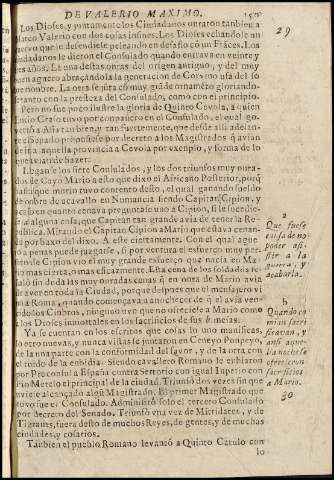 DE VALERIO MAXIMO.
Los Dioses, y juntamente los Ciudadanos onraron tambien a
Marco Valerio con dos cosas insines. Los Dioses echandole un
cuervo que le defendiese peleando en desafio có un Fráces. Los
ciudadanos le dieron el Consulado quando entrava en veinte y
tres años. Le una destas onras del origen antiguo, y del muy
buen aguero abraçandola la generacion de Corvino usa del so
bre nombre. La otra se juta có muy gráde ornaméto gloriandose
tanto con la presteza del Consulado, como con el principio.
Pero no fue poco ilustre la gloria de Quinto Cevola, a quien
Lucio Craso tuvo por compañero en el Consulado, el qual go
vernó a Asia tan bien, y tan fuertemente, que desde alli adelante
el Senado propusiese por decreto a los Magistrados q̃ avian
de ir a aquella provincia a Cevola por exenplo, y forma de lo
que avian de hazer.
Lleganse los siete Consulados, y los dos triunfos muy onra
dos de Cayo Mario a esto que dixo el Africano Posterior, porq̃
hasta que murio tuvo contento desto, el qual ganando sueldo
de onbre de a cavallo en Nomancia siendo Capitan Cipion, y
acaso en quanto cenava preguntase uno a Cipion, si le sucedie-
se algo a
que Capitan tan grande avia de tener la Re
publica. Mirando el Capitan Cipion a Mario que estava cenan
do por baxo del dixo. A este ciertamente. Con el qual ague
ro a penas puede juzgarse, si por ventura el esfuerço muy per-
feto de Cipion vio el muy grande esfuerço que nacia en Ma-
rio mas cierta, o mas eficazmente. Esta cena de los soldados se
ñaló sin duda las muy onradas cenas q̃ en onra de Mario avia
de aver en toda la Ciudad, porque despues que el mensajero vi
no a Roma, quando començava a anochecer de q̃ el avia ven-
cido los Cinbros, ninguno uvo que no ofreciese a Mario como
a los Dioses inmortales en los sacrificios de sus mesas.
Ya se cuentan en los escritos que cosas lo uno manificas,
lo otro nuevas, y nunca vistas se juntaron en Cneyo Ponpeyo,
de la una parte con la conformidad del favor, y de la otra con
el roido de la enbidia. Siendo cavallero Romano le enbiaron
por Proconsul a España contra Sertorio con igual Inperio con
Pio Metelo el principal de la ciudad. Triunfó dos vezes sin que
uviese alcançado algũ Magistrado. El primer Magistrado que
tuvo fue el Consulado. Administró solo el tercero Consulado
por decreto del Senado. Triunfó una vez de Mitridates, y de
Tigranes, fuera desto de muchos Reyes, de gentes, y de muchas
ciudades, y cosarios.
Tanbien el pueblo Romano levantó a Quinto Catulo con
lo
29
a
Que fuese
causa de no
poder asi-
stir a la
guerra, y
acabarla.
b
Quando co
mian sacri
ficavan, y
ansi aque-
lla noche le
ofrecieron
sacrificios
a Mario.
30